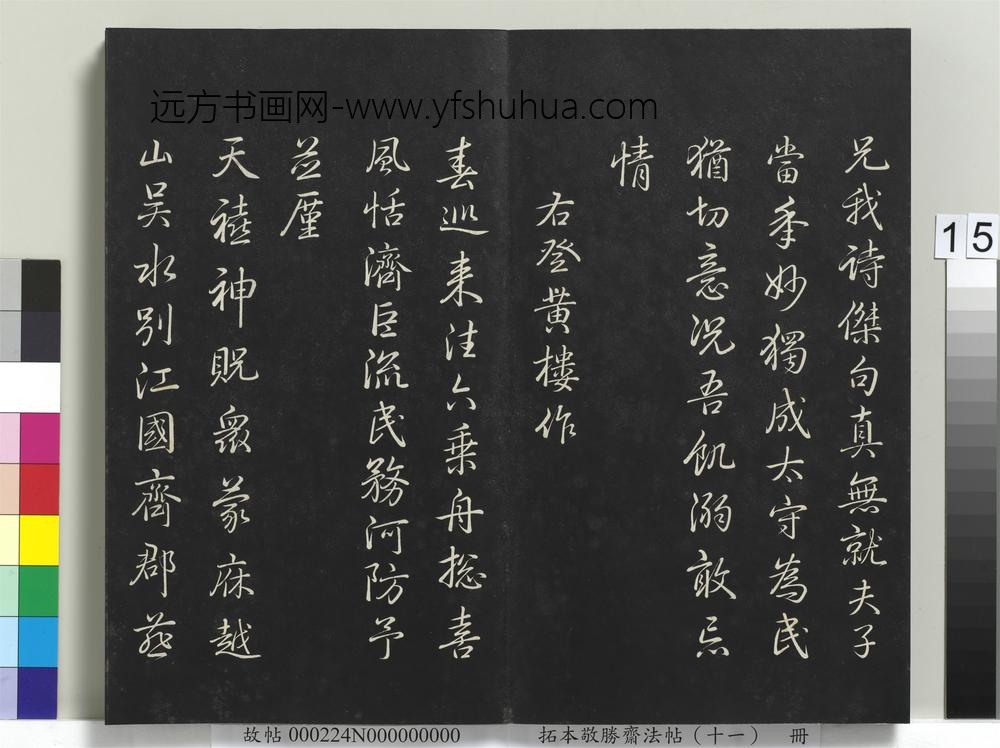 远方书画网-www.yfshuhua.com
兄我詩傑句真無就夫子
當秊妙獨成太守為民
猶切意況吾飢溺敢忘
情
右登黃樓作
春巡来往六乗舟揔喜
風恬濟巨流民務河防予
並厪
天禧神貺衆蒙庥越
山吴水別江國齊郡燕
15
故帖 000224N000000000
拓本敬勝齋法帖（十一） 冊